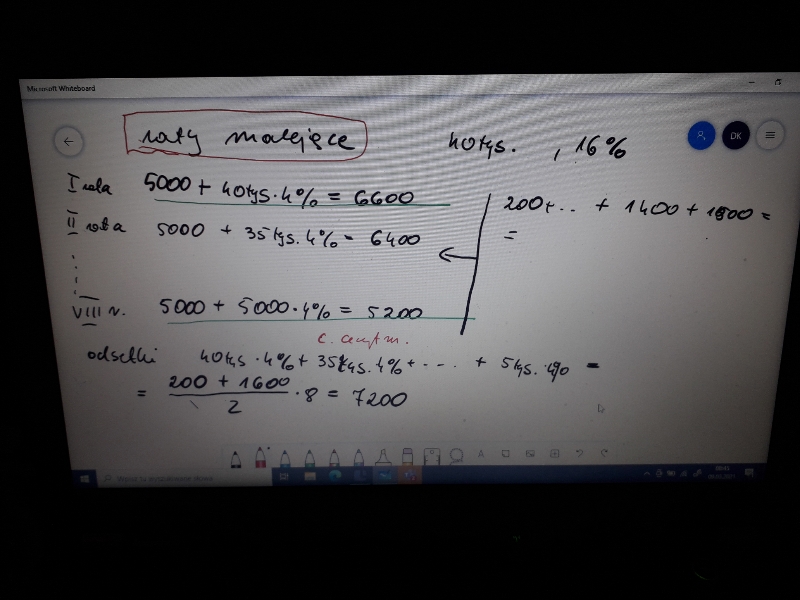 Microsoft Whiteboard
raty malejące
40tys. , 16%
DK
I rata 5000 + 40tys.4% = 6600
II rata 5000 + 35tys.4% = 6400
VIII r. 5000 + 5000.4% = 5200
200+... + 1400 + 1600 =
=
c. arytm.
odsetki 40tys.4% + 35tys.4% + ... + 5tys.4% =
= 200 + 1600 / 2 · 8 = 7200